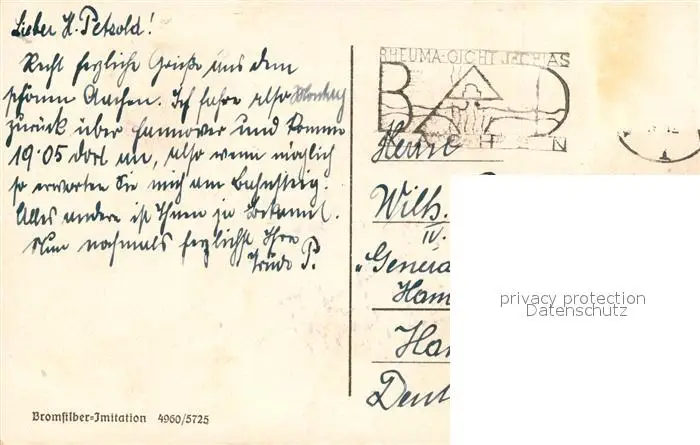 Lieber H. Petzold!
Recht herzliche Grüße aus dem
schönen Aachen. Ich fahre also Montag
zurück über Hannover und komme
19.05 dort an, also wenn möglich
so erwarten Sie mich am Bahnsteig.
Alles andere ist Ihnen ja bekannt.
Nun nochmals herzlichst Ihre
Trude P.
Bromsilber=Imitation 4960/5725
RHEUMA-GICHT-ISCHIAS
BAD
AACHEN
Herrn
Wilh.
IV.
"Genera
Ham
Han
Deut
privacy protection
Datenschutz